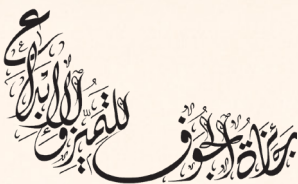 جائزة الجوف للتميز والإبداع